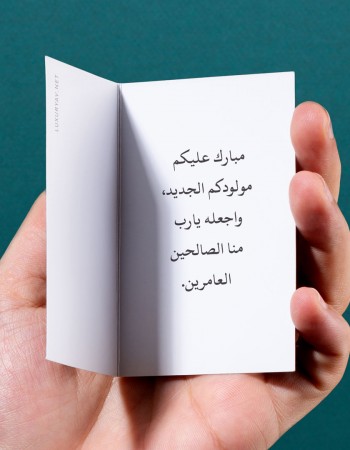 LUXURYBY.NET
مبارك عليكم
مولودكم الجديد،
واجعله يارب
منا الصالحين
العامرين.